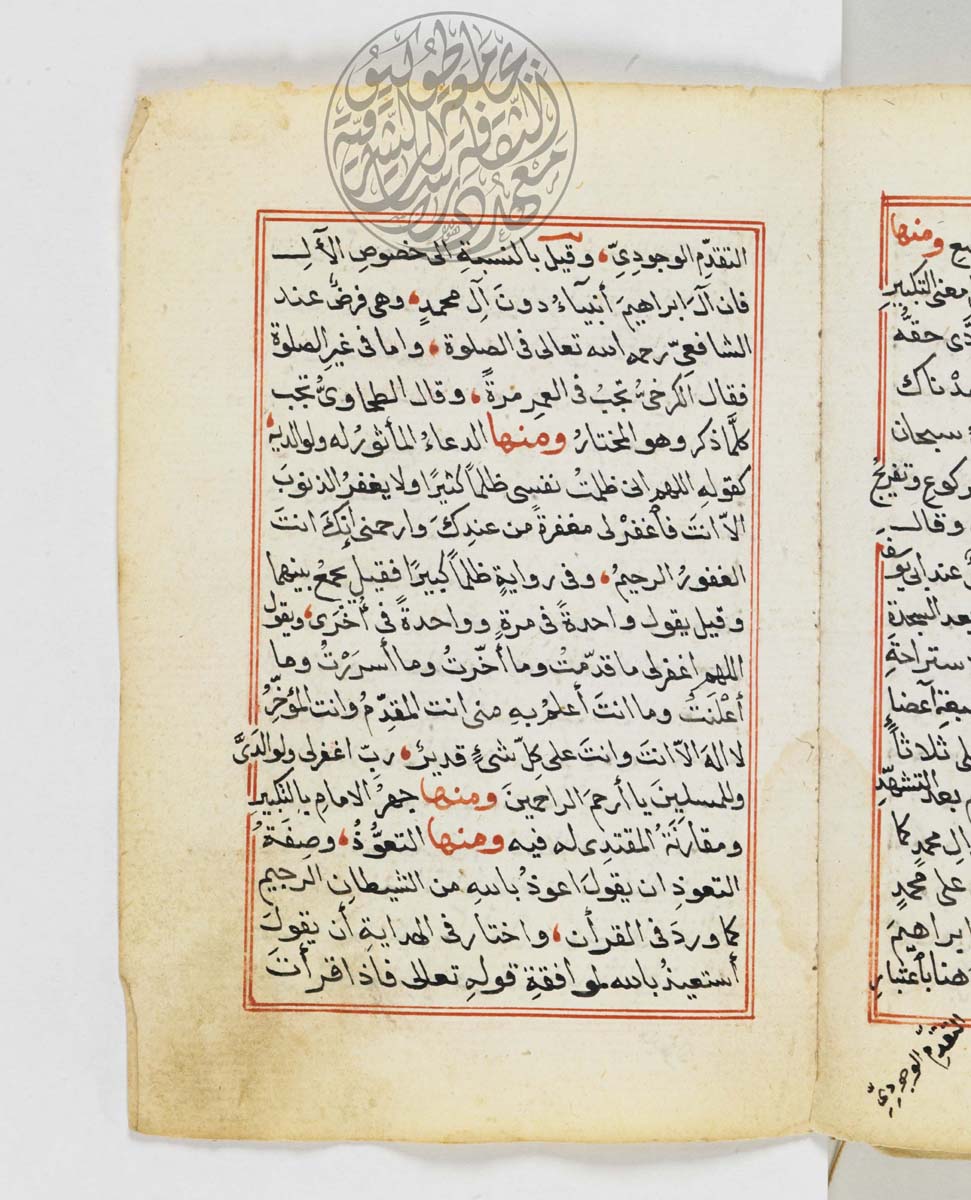 التقدّم الوجودىّ، وقيل بالنسبة الى خصوص الأل
فان آل ابراهيم أنبياء دون آل محمد، وهى فرض عند
الشافعىّ رحمه الله تعالى فى الصلوة، واما فى غير الصلوة
فقال الكرخىّ تجب فى العمر مرةً، وقال الطحاوىّ تجب
كلّما ذكر وهو المختار ومنها الدعاء المأثور له ولوالديه،
كقوله اللهم انى ظلمت نفسى ظلماً كثيرًا ولا يغفر الذنوب
الاّ انت فأغفر لى مغفرة من عندك وارحمنى إنّك انت
الغفور الرحيم، وفى رواية ظلماً كبيرًا فقيل يجمع بينهما
وقيل يقول واحدةً فى مرةٍ وواحدةً فى أخرى، ويقول
اللهم اغفر لى ما قدّمت وما أخّرت وما أسررت وما
أعلنت وما انت أعلم به منى انت المقدّم وانت المؤخّر
لا اله الاّ انت وانت على كلّ شئ قدير، ربّ اغفر لى ولوالدىّ
وللمسلمين يا أرحم الراحمين ومنها جهر الامام بالتكبير
ومقارنة المقتدى له فيه ومنها التعوّذ، وصفة
التعوذ ان يقول اعوذ بالله من الشيطان الرجيم
كما ورد فى القرأن، واختار فى الهداية أن يقول
أستعيذ بالله لموافقة قوله تعالى فاذا قرأت
ومنها
معنى التكبير
حقه
سبحان
ركوع وتفريج
وقال
عند ابى يوسف
بعد السجدة
ستراحة
ثلاثاً
بعد التشهّد
محمد كما
على محمدٍ
ابراهيم
هنا بأعتبار
التقدّم الوجودىّ